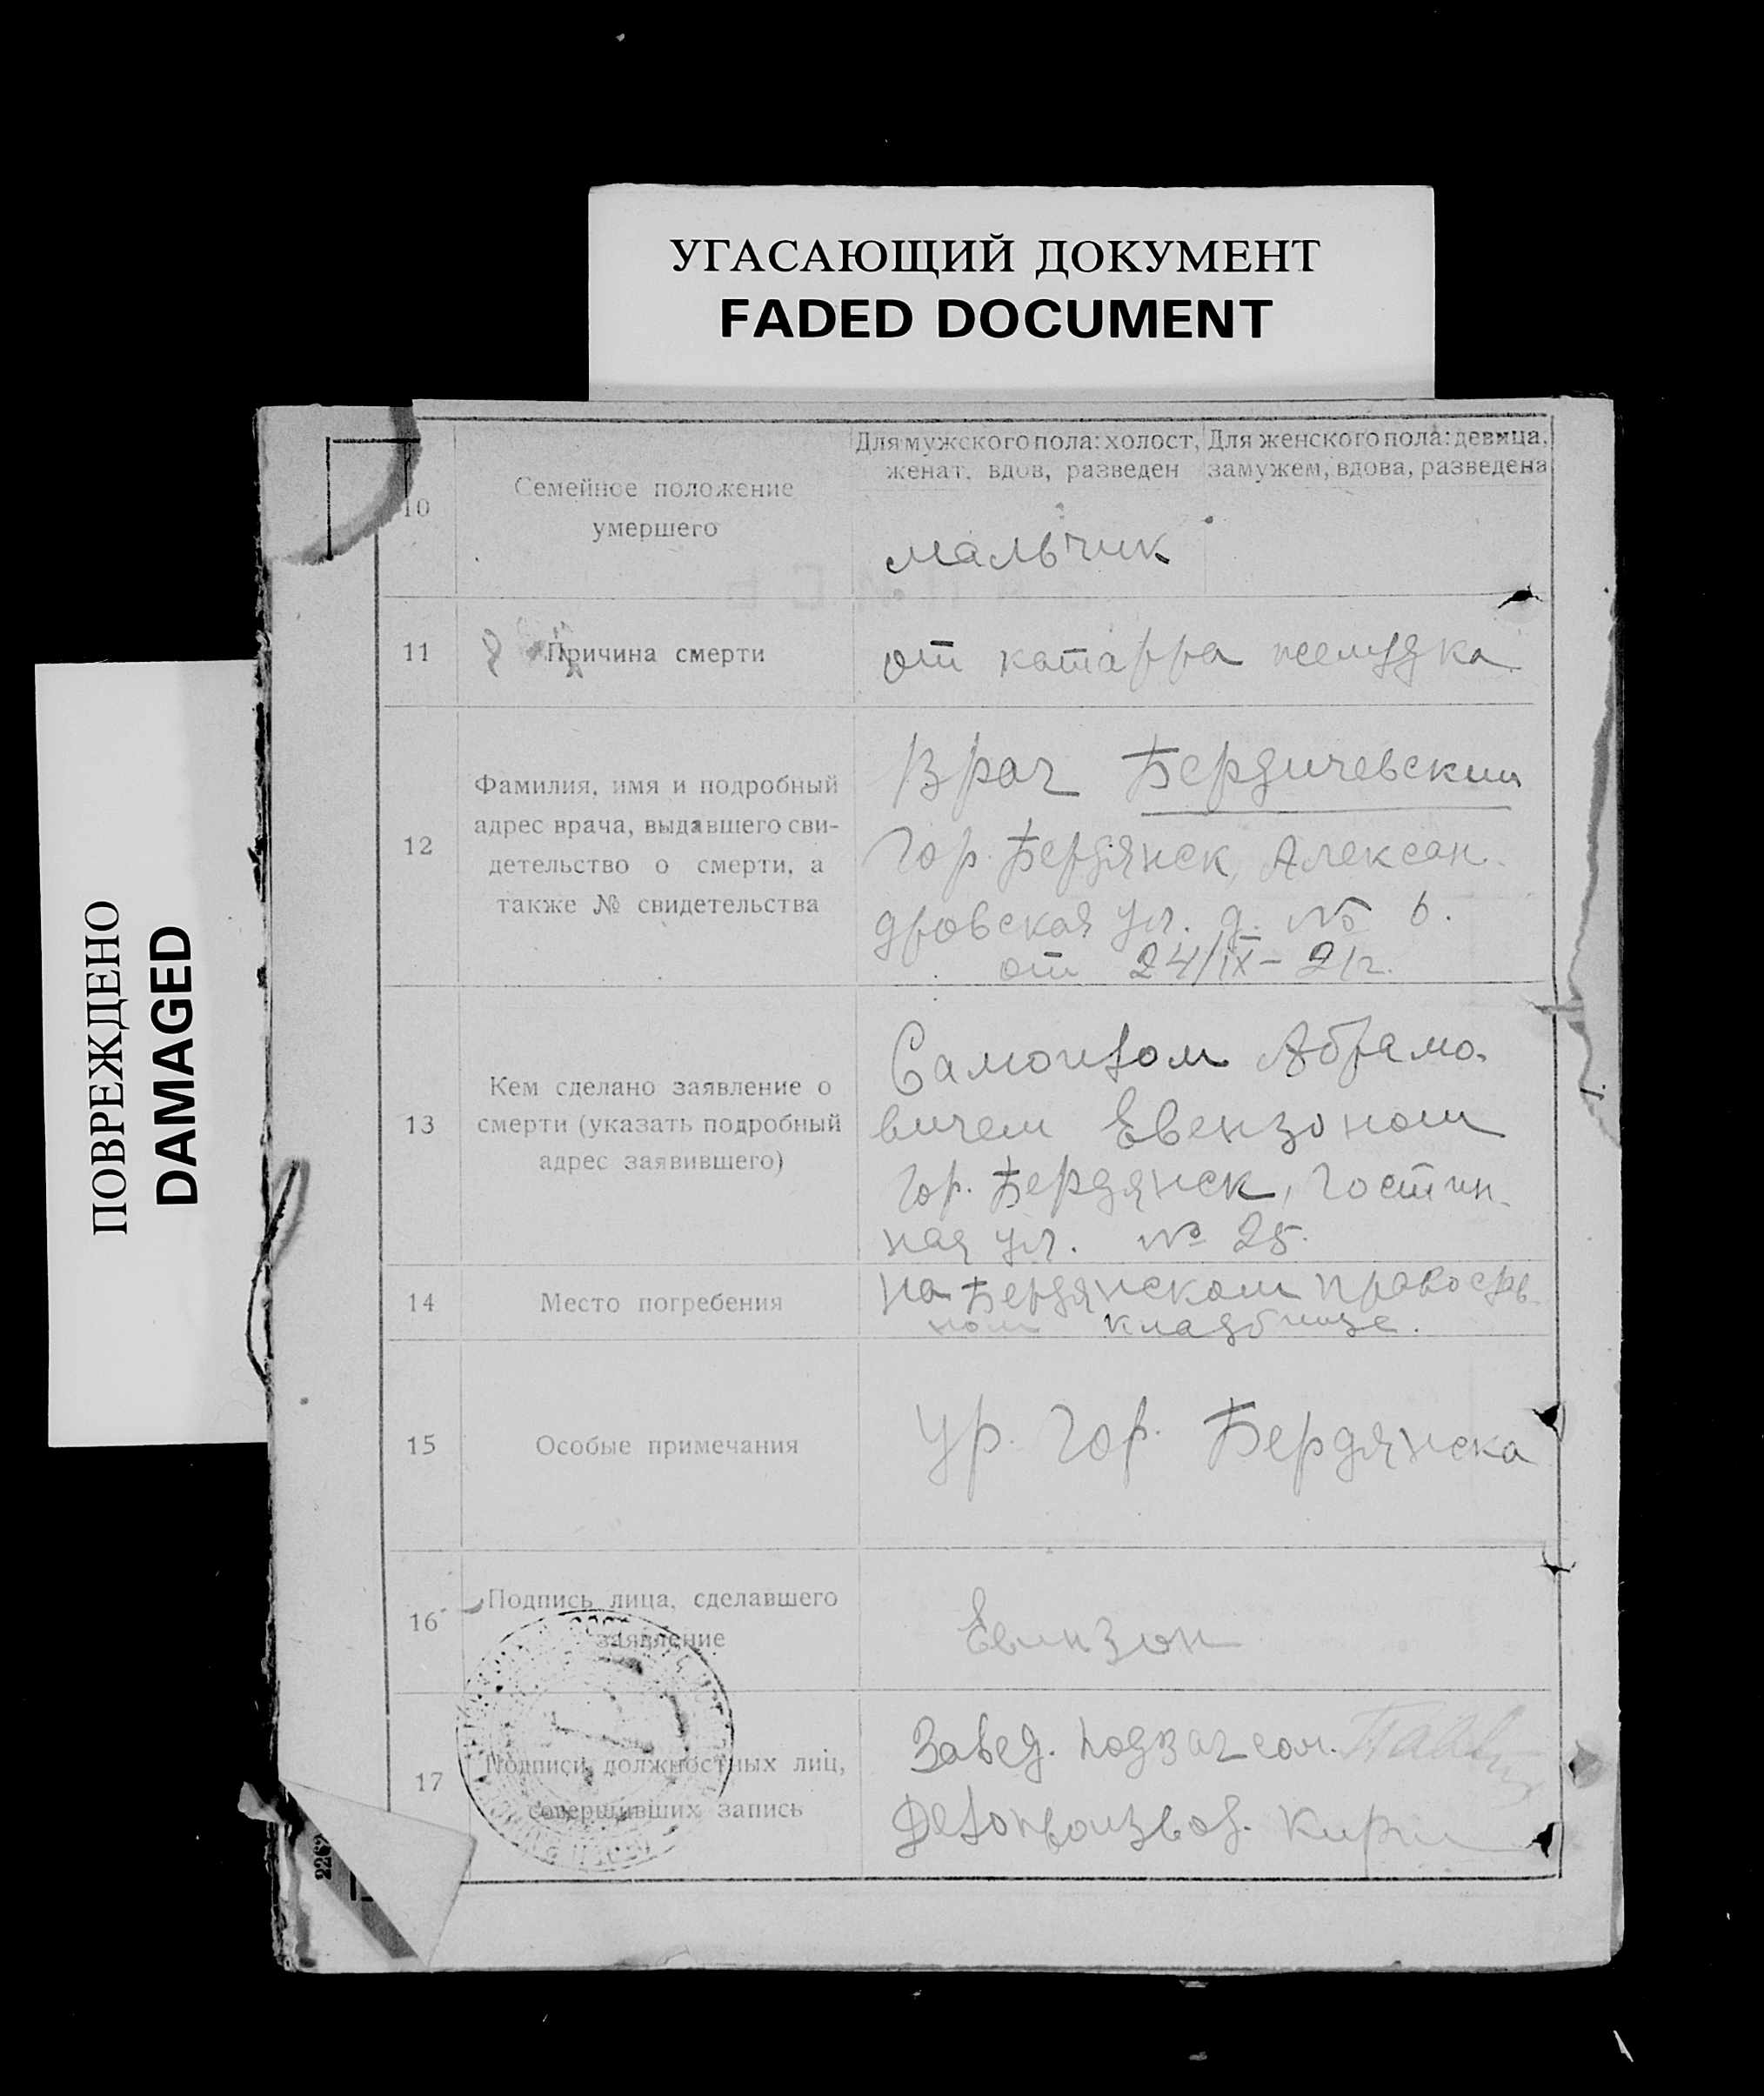 УГАСАЮЩИЙ ДОКУМЕНТ
FADED DOCUMENT
ПОВРЕЖДЕНО
DAMAGED
10
Семейное положение
умершего
Для мужского пола: холост,
женат, вдов, разведен
Для женского пола: девица,
замужем, вдова, разведена
мальчик
11
Причина смерти
от катарра желудка
12
Фамилия, имя и подробный
адрес врача, выдавшего сви-
детельство о смерти, а
также № свидетельства
Врач Бердичевский
Гор. Бердянск, Алексан-
дровская ул. д. № 6.
от 24/IX – 21 г.
13
Кем сделано заявление о
смерти (указать подробный
адрес заявившего)
Абрамо-
вичем Евензоном
гор. Бердянск, Гостин-
ная ул. № 25.
14
Место погребения
на Бердянском
ном кладбище.
15
Особые примечания
Ур. гор. Бердянска
16
Подпись лица, сделавшего
заявление
Евинзон
17
Подписи должностных лиц,
совершивших запись
Завед. подзагсом.
Делопроизвод.
226